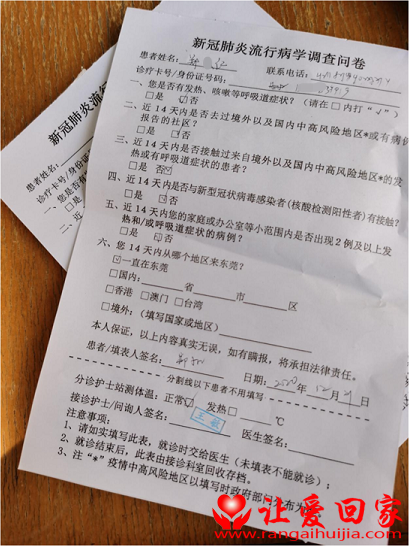 新冠肺炎流行病学调查问卷
患者姓名: 联系电话:
诊疗卡号/身份证号码:
一、您是否有发热、咳嗽等呼吸道症状?(请在□内打“√”)
□是 ☑否
二、近14天内是否去过境外以及国内中高风险地区*或有病例
报告的社区?
□是 ☑否
三、近14天内是否接触过来自境外以及国内中高风险地区*的发
热或有呼吸道症状的患者?
□是 ☑否
四、近14天内是否与新型冠状病毒感染者(核酸检测阳性者)有接触?
□是 ☑否
五、近14天内您的家庭或办公室等小范围内是否出现2例及以上发
热和/或呼吸道症状的病例?
□是 ☑否
六、您14天内从哪个地区来东莞?
☑一直在东莞
□国内: 省 市 区
□香港 □澳门 □台湾
□境外:(填写国家或地区)
本人保证,以上内容真实无误,如有瞒报,将承担法律责任。
患者/填表人签名: 日期: 2020年12月21日
分割线以下患者不用填写
分诊护士站测体温:正常☑ 发热□ ℃
接诊护士/问询人签名: 医生签名:
注意事项:
1、请如实填写此表,就诊时交给医生(未填表不能就诊);
2、就诊结束后,此表由接诊科室回收存档。
3、注“*”疫情中高风险地区以填写时政府部门公布为
新冠肺炎流行
患者姓名:
诊疗卡号/身份证
一、您是否有
□是
二、近
让爱回家
www.rangaihuijia.com